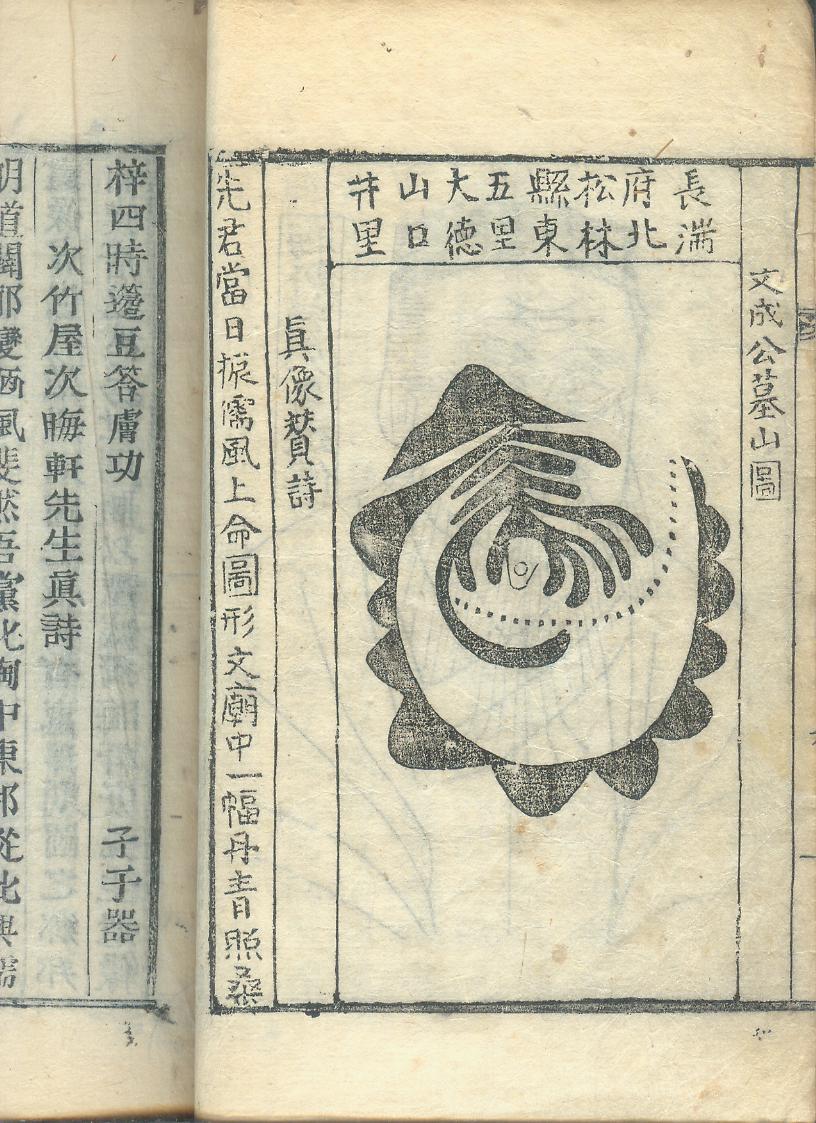 文成公墓山圖
長湍
府北
松林
縣東
五里
大德
山口
井里
眞像贊詩
先君當日振儒風上命圖形文廟中一幅丹青照桑
梓四時籩豆答膚功 子子器
次竹屋次晦軒先生眞詩
明道闢邪變陋風斐然吾黨 胸中東邦從此興儒